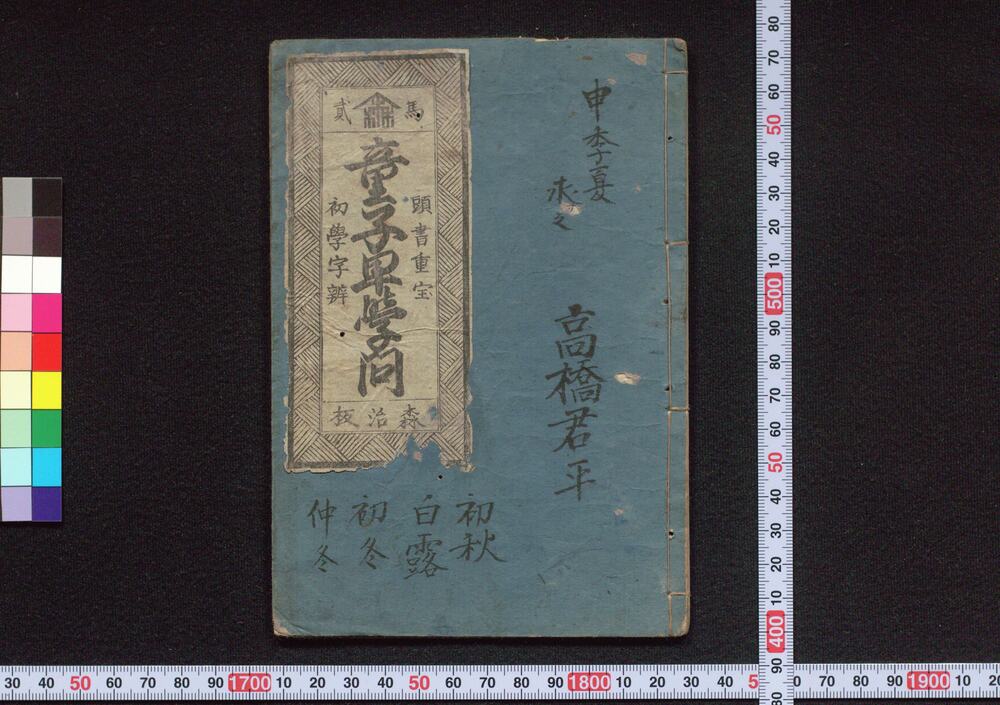 申季夏
求之
高橋君平
馬 貳
頭書重宝
童子早学問
初學字辨
森治板
初秋
白露
初冬
仲冬
80
70
60
50
40
30
20
10
500
90
80
70
60
50
40
30
20
10
400
90
80
30 40 50 60 70 80 90 1700 10 20 30 40 50 60 70 80 90 1800 10 20 30 40 5 0 70 80 90 1900 10 20